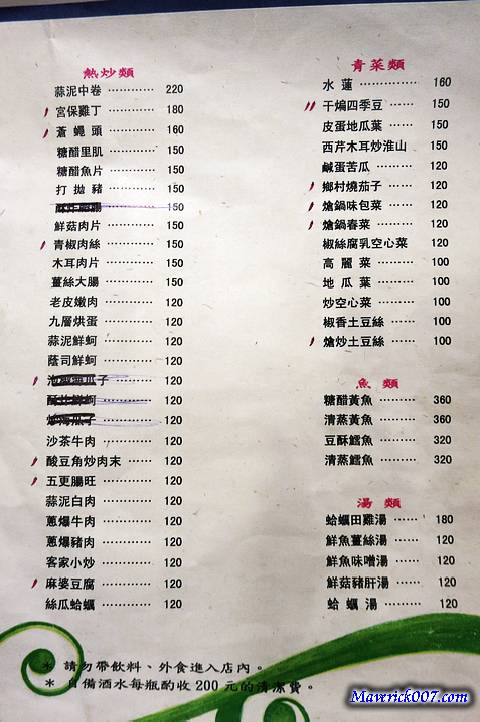 熱炒類
蒜泥中卷 ………… 220
宮保雞丁 ………… 180
蒼蠅頭 ………… 160
糖醋里肌 ………… 150
糖醋魚片 ………… 150
打拋豬 ………… 150
………… 150
鮮菇肉片 ………… 150
青椒肉絲 ………… 150
木耳肉片 ………… 150
薑絲大腸 ………… 150
老皮嫩肉 ………… 120
九層烘蛋 ………… 120
蒜泥鮮蚵 ………… 120
蔭司鮮蚵 ………… 120
瓜子 ………… 120
………… 120
………… 120
沙茶牛肉 ………… 120
酸豆角炒肉末 ……… 120
五更腸旺 ………… 120
蒜泥白肉 ………… 120
蔥爆牛肉 ………… 120
蔥爆豬肉 ………… 120
客家小炒 ………… 120
麻婆豆腐 ………… 120
絲瓜蛤蠣 ………… 120
青菜類
水蓮 ………… 160
干煸四季豆 …… 150
皮蛋地瓜葉 …… 150
西芹木耳炒淮山 150
鹹蛋苦瓜 ……… 120
鄉村燒茄子 …… 120
熗鍋味包菜 …… 120
熗鍋春菜 ……… 120
椒絲腐乳空心菜 120
高麗菜 ……… 100
地瓜葉 ……… 100
炒空心菜 ……… 100
椒香土豆絲 …… 100
熗炒土豆絲 …… 100
魚類
糖醋黃魚 ……… 360
清蒸黃魚 ……… 360
豆酥鱈魚 ……… 320
清蒸鱈魚 ……… 320
湯類
蛤蠣田雞湯 …… 180
鮮魚薑絲湯 …… 120
鮮魚味噌湯 …… 120
鮮菇豬肝湯 …… 120
蛤蠣湯 ……… 120
* 請勿帶飲料、外食進入店內。
* 自備酒水每瓶酌收200元的清潔費。
Maverick007.com